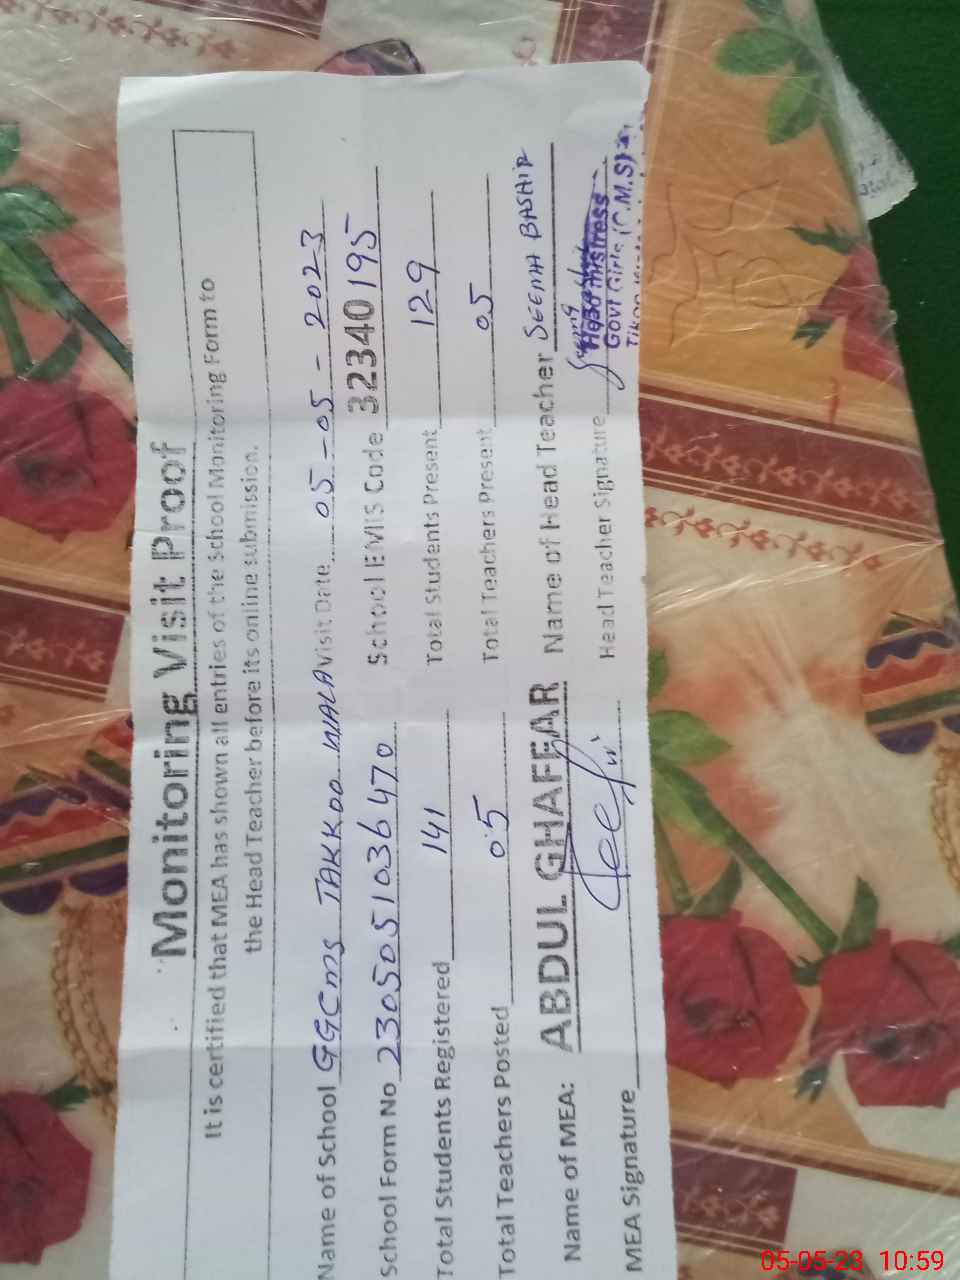 Monitoring Visit Proof
It is certified that MEA has shown all entries of the School Monitoring Form to
the Head Teacher before its online submission.
Name of School GGCMS TAKKOO WALA Visit Date 05-05-2023
School Form No 2305051036470 School EMIS Code 32340195
Total Students Registered 141 Total Students Present 129
Total Teachers Posted 05 Total Teachers Present 05
Name of MEA: ABDUL GHAFFAR Name of Head Teacher SEEMA BASHIR
MEA Signature Head Teacher Signature
Head Mistress
Govt Girls (C.M.S)
05-05-23 10:59